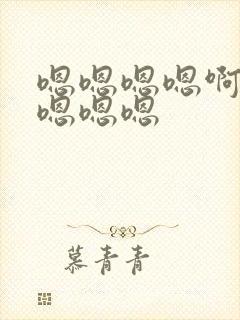 嗯嗯嗯嗯啊
嗯嗯嗯
慕青青